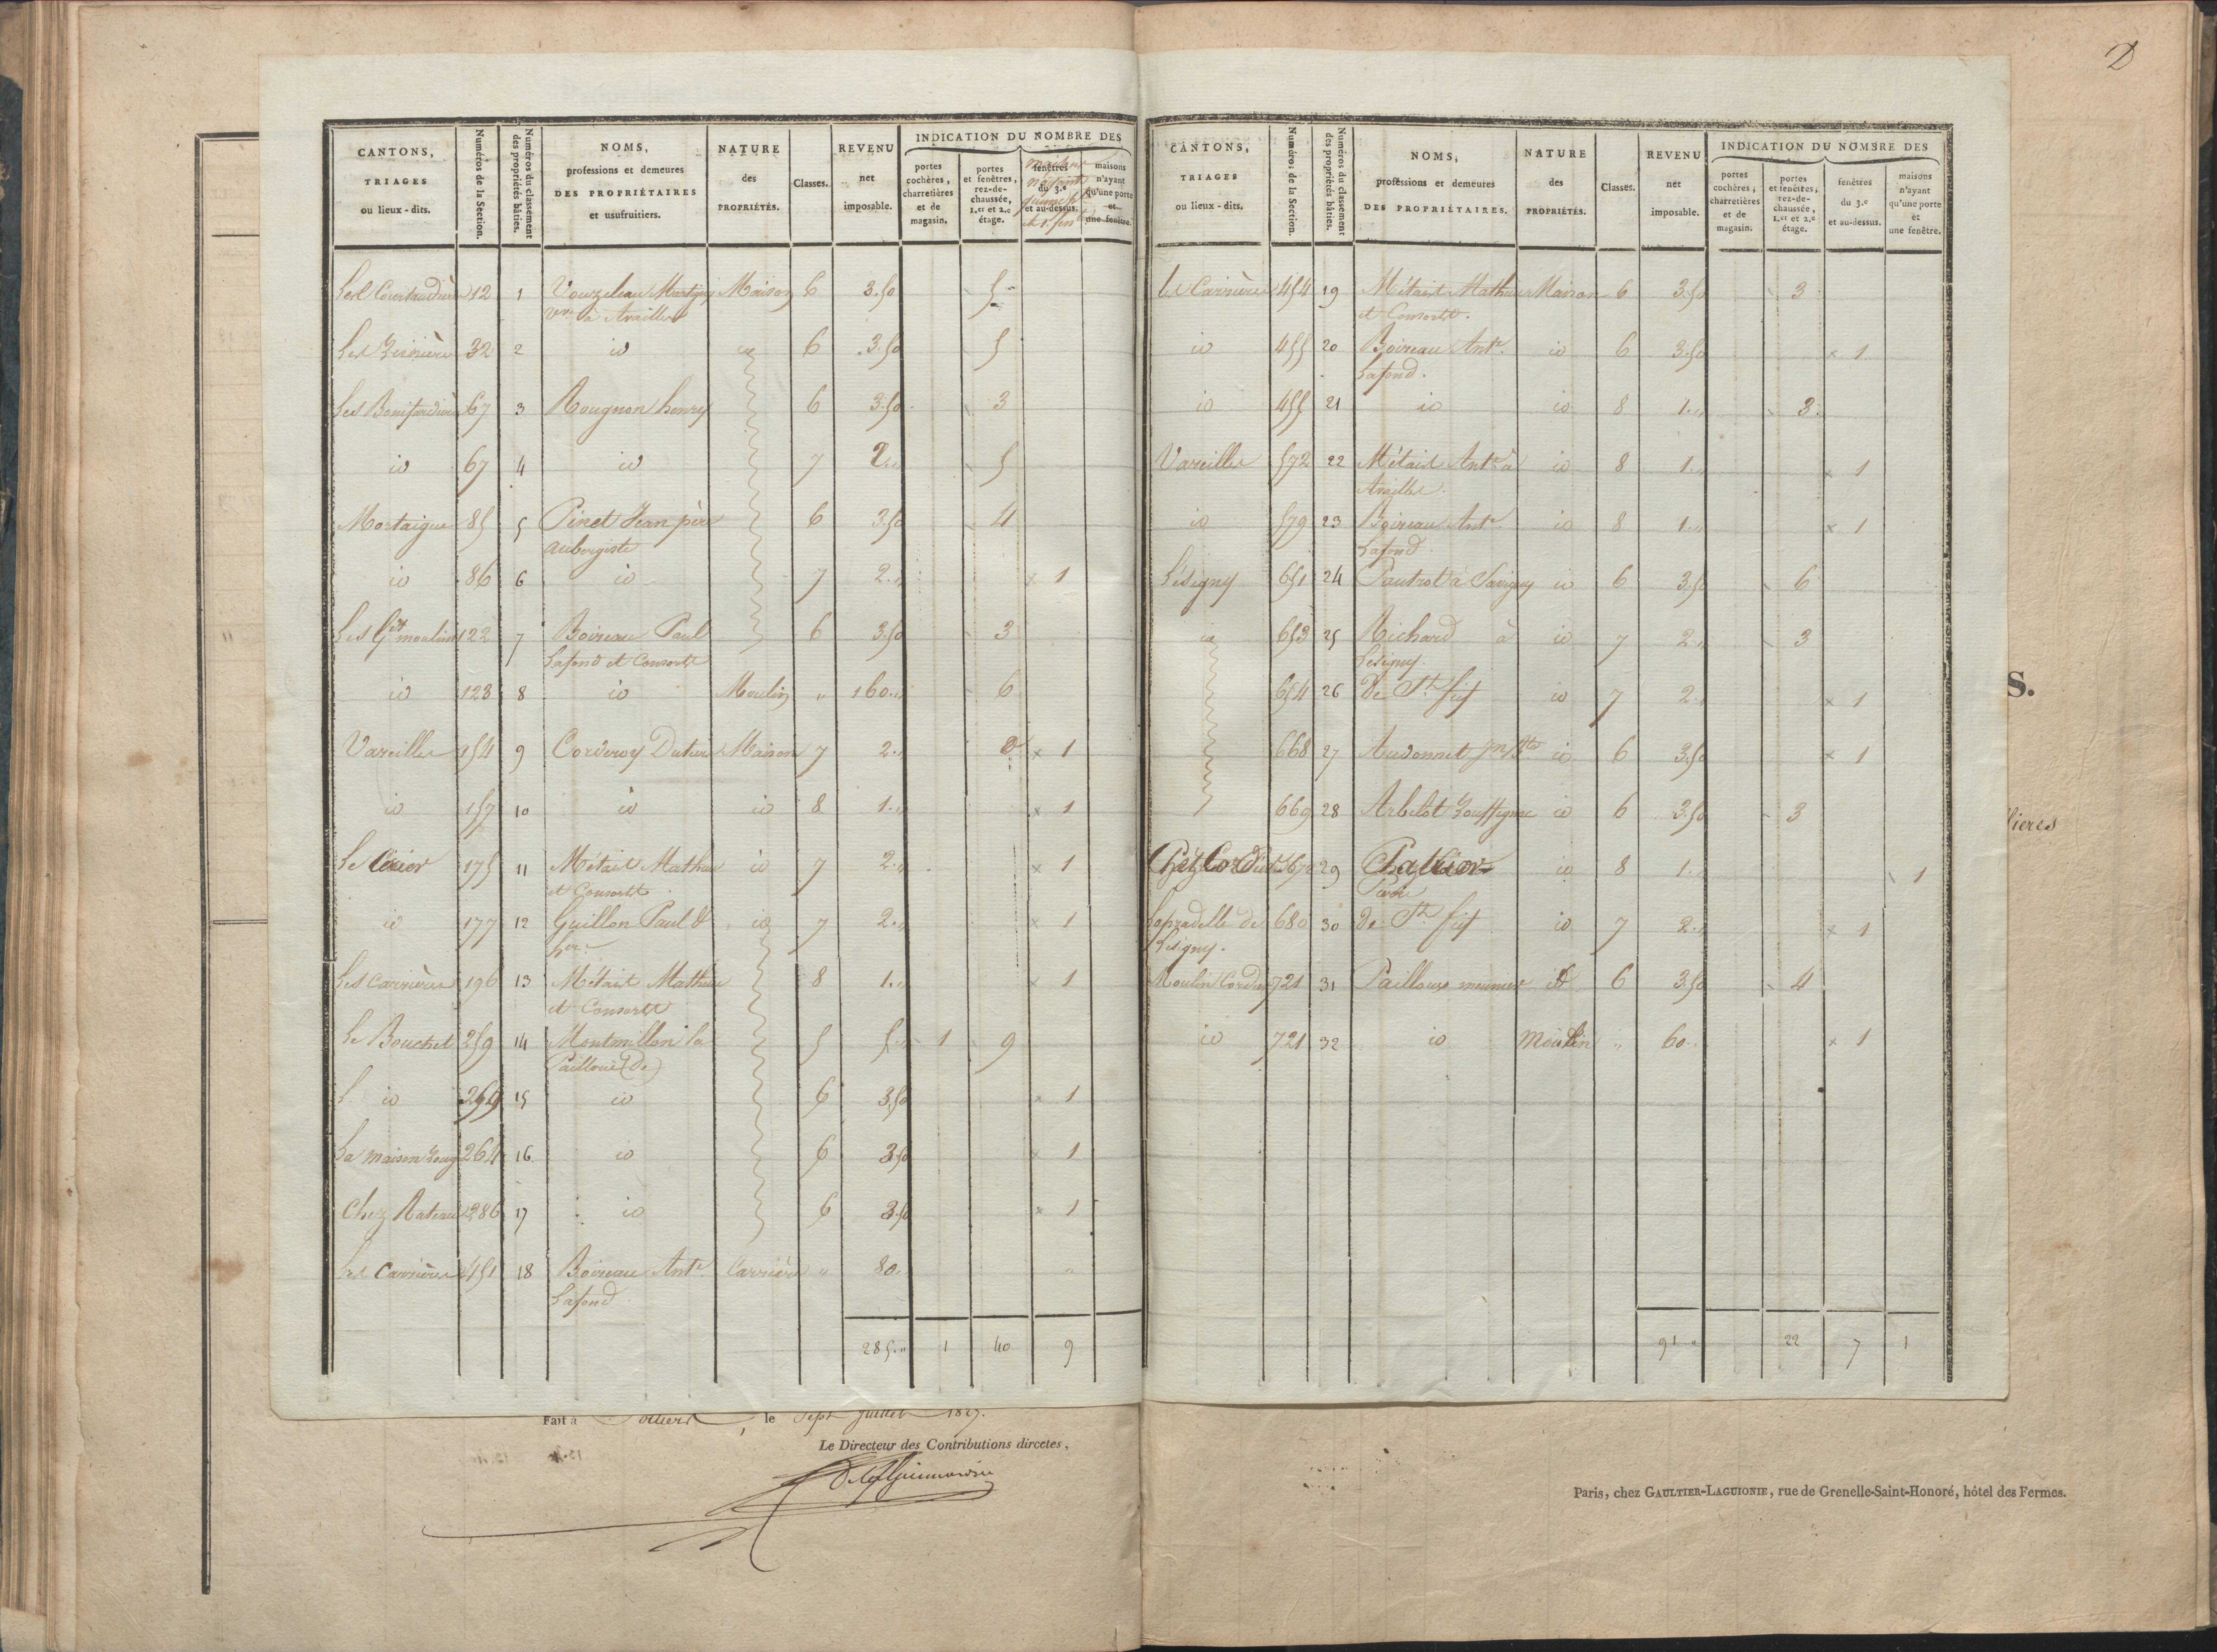 D
CANTONS, TRIAGES ou lieux-dits. Numéros de la Section. Numéros du classement des propriétés bâties. NOMS, professions et demeures DES PROPRIÉTAIRES et usufruitiers. NATURE des PROPRIÉTÉS. Classes. REVENU net imposable. INDICATION DU NOMBRE DES portes cochères, charretières et de magasin. portes et fenêtres, rez-de-chaussée, 1.er et 2.e étage. fenêtres du 3.e et au-dessus. maisons n'ayant qu'une porte et une fenêtre.
12 1 Maison 6 3.50 5
à Availles
32 2 id id 6 3.50 5
67 3 Rougnon henry 6 3.50 3
id 67 4 id 7 2.. 5
Mortaigue 85 5 Pinet Jean père 6 3.50 4
aubergiste
id 86 6 id 7 2.. x 1
Les Gds moulins 122 7 Boireau Paul 6 3.50 3
Lafond et Consorts
id 123 8 id Moulin " 160.. 6
Vareilles 154 9 Corderoy Dutiers Maison 7 2.. x 1
id 157 10 id id 8 1.. x 1
175 11 Métais Mathieu id 7 2.. x 1
et Consorts
id 177 12 Guillon Paul & id 7 2.. x 1
Les Carrières 196 13 Métais Mathieu 8 1.. x 1
et Consorts
Le Bouchet 259 14 Montmillon la 5 5.. 1 9
(De)
id 15 id 6 3.50 x 1
La maison rouge 264 16 id 6 3.50 x 1
Chez Rateau 286 17 id 6 3.50 x 1
Les Carrières 451 18 Boireau Ant.e Carrière " 80.. "
Lafond
285." 1 40 9
CANTONS, TRIAGES ou lieux-dits. Numéros de la Section. Numéros du classement des propriétés bâties. NOMS, professions et demeures DES PROPRIÉTAIRES. NATURE des PROPRIÉTÉS. Classes. REVENU net imposable. INDICATION DU NOMBRE DES portes cochères, charretières et de magasin. portes et fenêtres, rez-de-chaussée, 1.er et 2.e étage. fenêtres du 3.e et au-dessus. maisons n'ayant qu'une porte et une fenêtre.
Les Carrières 454 19 Métais Mathieu Maison 6 3.50 3
et Consorts.
id 455 20 Boireau Ant.e id 6 3.50 x 1
Lafond.
id 455 21 id id 8 1.. 3
Vareilles 572 22 Métais Ant.e à id 8 1.. x 1
Availles.
id 579 23 Boireau Ant.e id 8 1.. x 1
Lafond
Lésigny 651 24 Pautrot à Savigny id 6 3.50 6
id 653 25 Richard à id 7 2.. 3
Lésigny.
654 26 De St. fief id 7 2.. x 1
668 27 Audonnet id 6 3.50 x 1
669 28 Arbelot id 6 3.50 3
29 id 8 1.. 1
680 30 De St. fief id 7 2.. x 1
Lésigny.
721 31 Pailloux meunier id 6 3.50 4
id 721 32 id Moulin " 60.. x 1
91 " 22 7 1
S.
lieres
Fait à Poitiers, le Sept Juillet
Le Directeur des Contributions directes,
Paris, chez GAULTIER-LAGUIONIE, rue de Grenelle-Saint-Honoré, hôtel des Fermes.